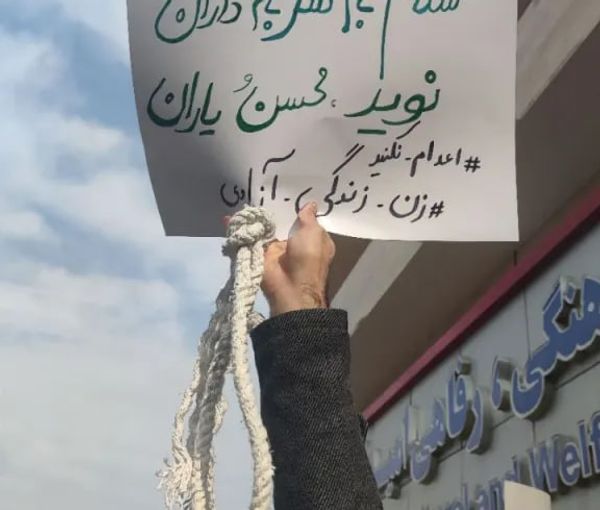 سلام بام سر به داران
نوید، محسن و یاران
#اعدام_نکنید
#زن_زندگی_آزادی
هنگی، رفاهی امی
and Welf